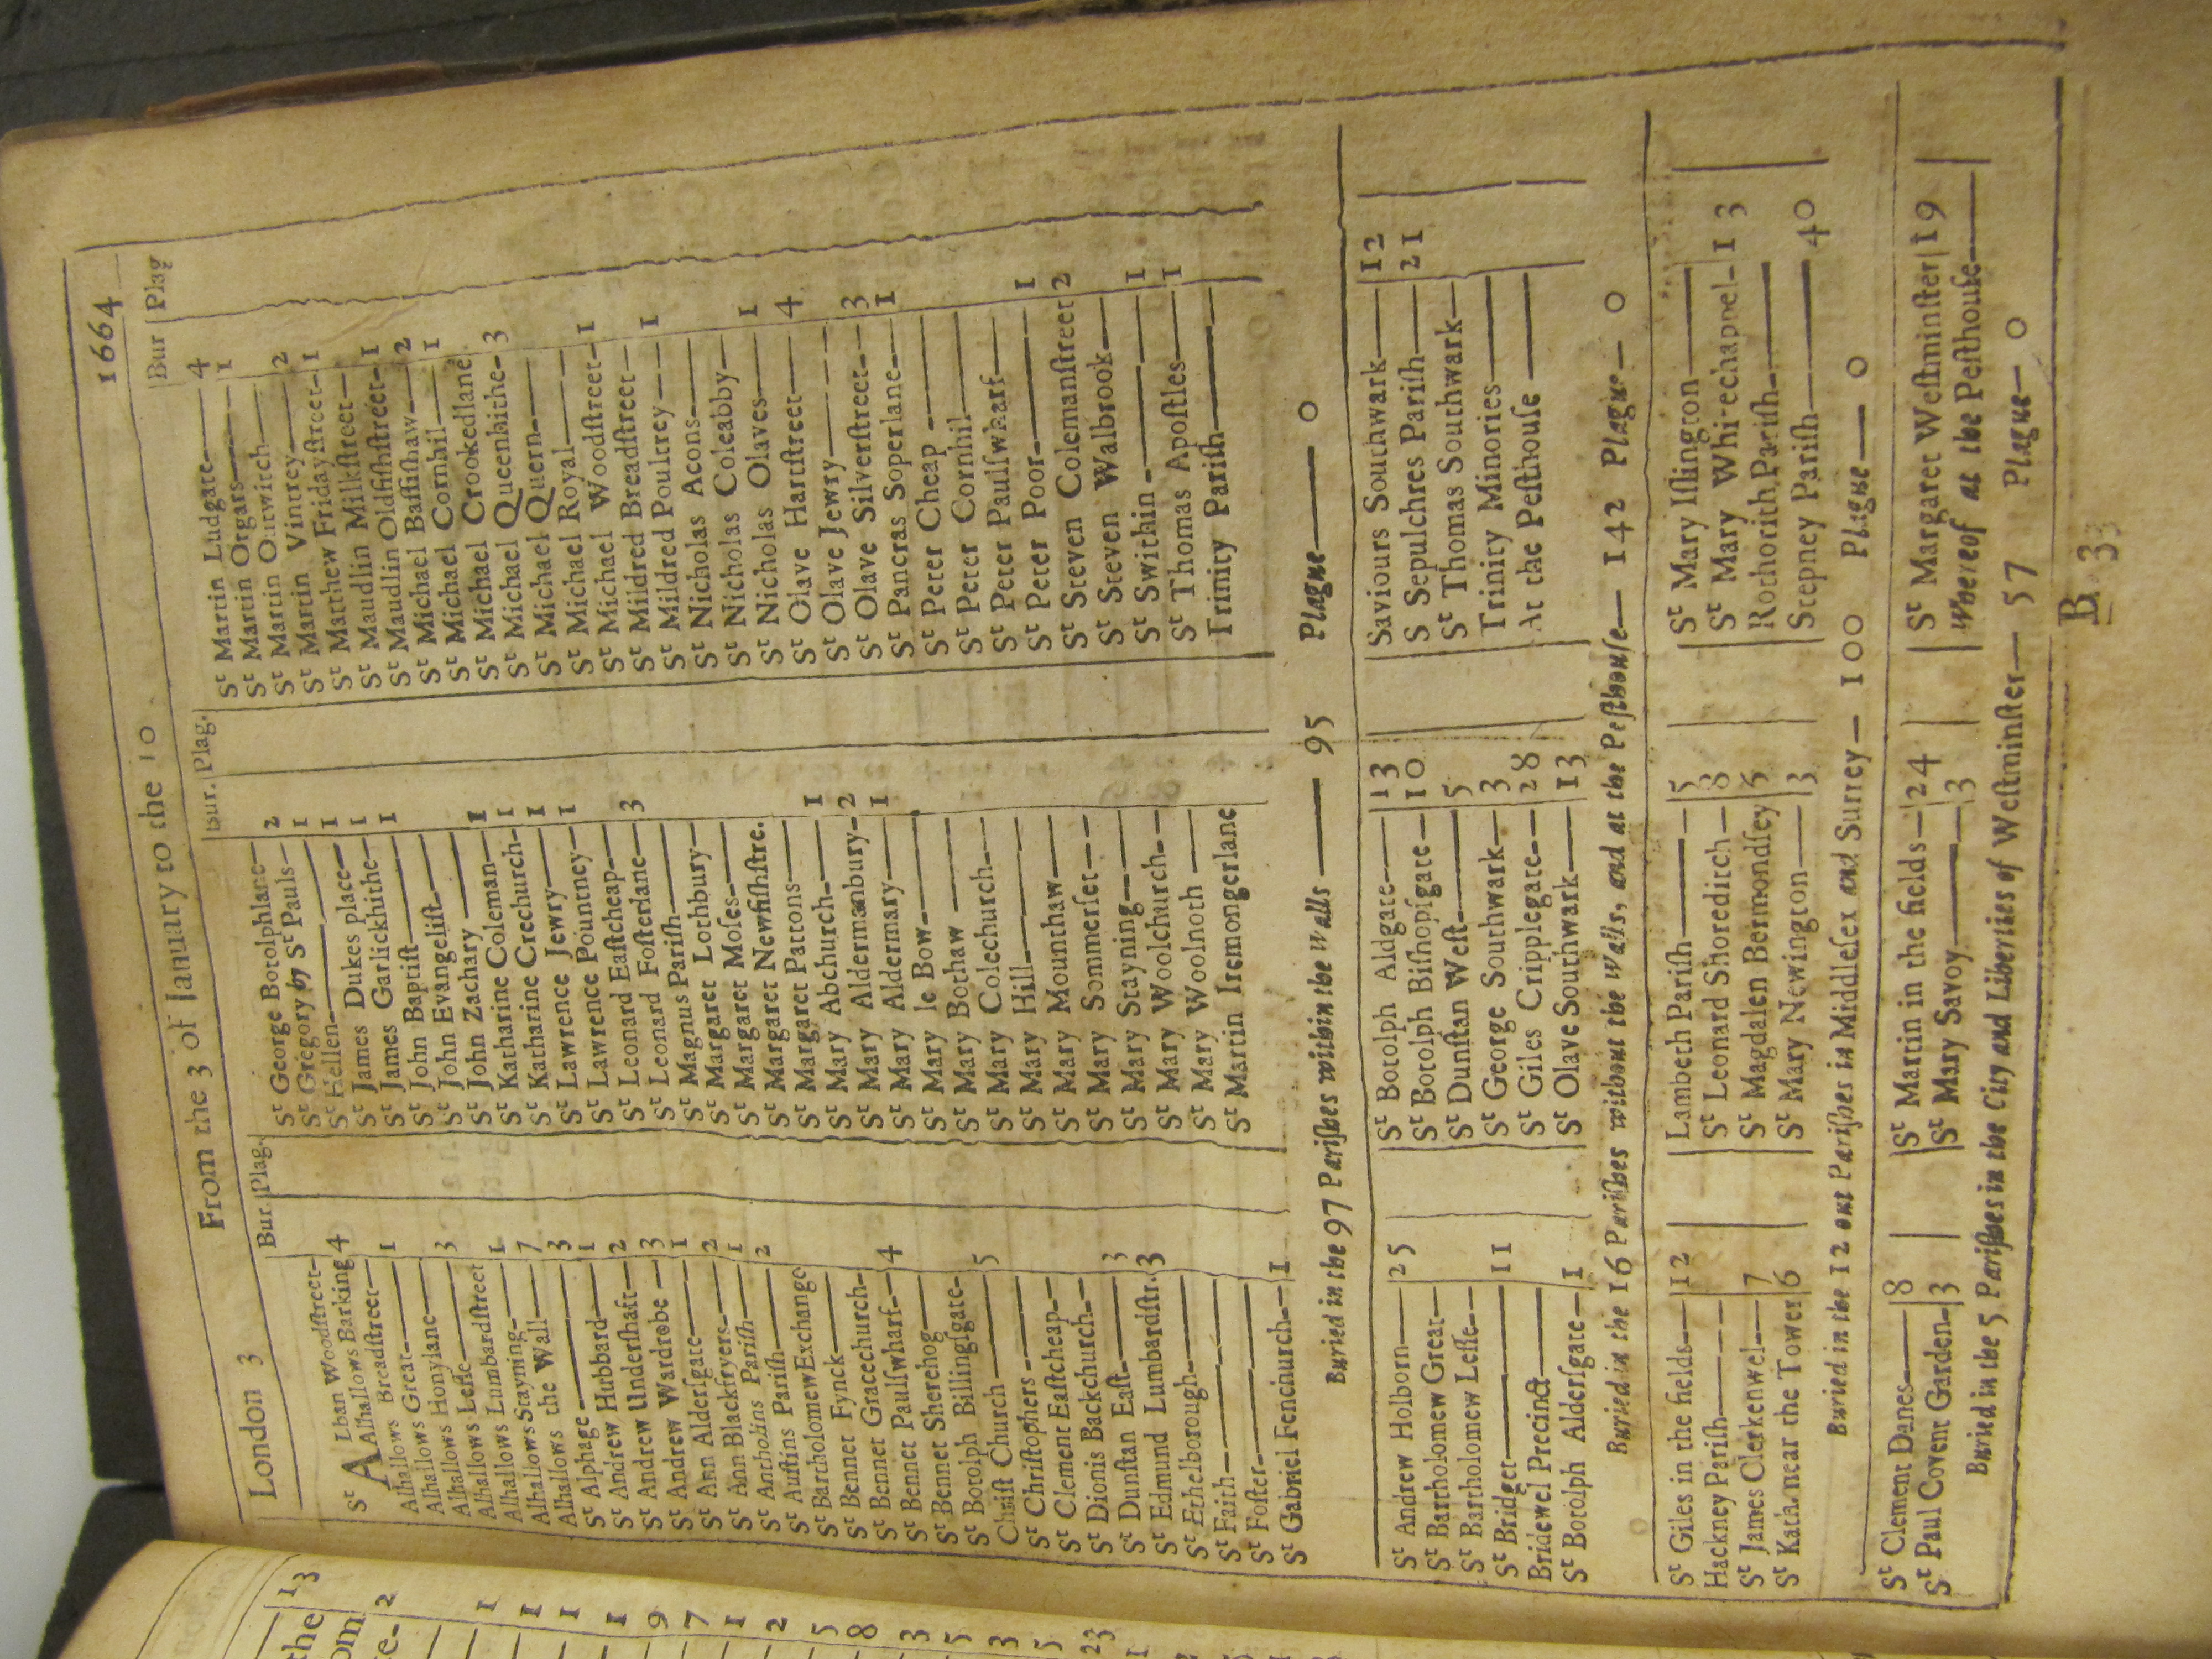 London 3 From the 3 of January to the 10 1664
Bur. Plag.
St ALban Woodstreet—
Alhallows Barking 4
Alhallows Breadstreet—
Alhallows Great— 1
Alhallows Honylane—
Alhallows Lesse— 3
Alhallows Lumbardstreet
Alhallows Stayning— 1
Alhallows the Wall— 7
St Alphage— 3
St Andrew Hubbard— 1
St Andrew Undershaft— 2
St Andrew Wardrobe— 3
St Ann Aldersgate— 1
St Ann Blackfryers— 2
St Antholins Parish— 1
St Austins Parish— 2
St Bartholomew Exchange
St Bennet Fynck—
St Bennet Gracechurch—
St Bennet Paulswharf— 4
St Bennet Sherehog—
St Botolph Billingsgate—
Christ Church— 5
St Christophers—
St Clement Eastcheap—
St Dionis Backchurch—
St Dunstan East— 3
St Edmund Lumbardstr. 3
St Ethelborough—
St Faith—
St Foster—
St Gabriel Fenchurch— 1
Bur. Plag.
St George Botolphlane— 2
St Gregory by St Pauls— 1
St Hellen— 1
St James Dukes place— 1
St James Garlickhithe— 1
St John Baptist—
St John Evangelist—
St John Zachary—
St Katharine Coleman— 1
St Katharine Crechurch— 1
St Lawrence Jewry— 1
St Lawrence Pountney— 1
St Leonard Eastcheap—
St Leonard Fosterlane— 3
St Magnus Parish—
St Margaret Lothbury—
St Margaret Moses—
St Margaret Newfishstre.
St Margaret Pattons—
St Mary Abchurch— 1
St Mary Aldermanbury— 2
St Mary Aldermary— 1
St Mary le Bow—
St Mary Bothaw—
St Mary Colechurch—
St Mary Hill—
St Mary Mounthaw—
St Mary Sommerset—
St Mary Stayning—
St Mary Woolchurch—
St Mary Woolnoth—
St Martin Iremongerlane
Bur Plag
St Martin Ludgate— 4
St Martin Orgars— 1
St Martin Outwitch—
St Martin Vintrey— 2
St Matthew Fridaystreet— 1
St Maudlin Milkstreet—
St Maudlin Oldfishstreet— 1
St Michael Bassishaw— 2
St Michael Cornhil— 1
St Michael Crookedlane
St Michael Queenhithe— 3
St Michael Quern—
St Michael Royal—
St Michael Woodstreet— 1
St Mildred Breadstreet—
St Mildred Poultrey— 1
St Nicholas Acons—
St Nicholas Coleabby—
St Nicholas Olaves— 1
St Olave Hartstreet— 4
St Olave Jewry—
St Olave Silverstreet— 3
St Pancras Soperlane— 1
St Peter Cheap—
St Peter Cornhil—
St Peter Paulswharf—
St Peter Poor— 1
St Steven Colemanstreet 2
St Steven Walbrook—
St Swithin— 1
St Thomas Apostles— 1
Trinity Parish—
Buried in the 97 Parishes within the Walls— 95 Plague— 0
St Andrew Holborn— 25
St Bartholomew Great—
St Bartholomew Lesse—
St Bridget— 11
Bridewel Precinct—
St Botolph Aldersgate— 1
St Botolph Aldgate— 13
St Botolph Bishopsgate— 10
St Dunstan West— 5
St George Southwark— 3
St Giles Cripplegate— 28
St Olave Southwark— 13
Saviours Southwark— 12
S Sepulchres Parish— 21
St Thomas Southwark—
Trinity Minories—
At the Pesthouse—
Buried in the 16 Parishes without the Walls, and at the Pesthouse— 142 Plague— 0
St Giles in the fields— 12
Hackney Parish—
St James Clerkenwel— 7
St Kath. near the Tower 6
Lambeth Parish— 5
St Leonard Shoreditch— 8
St Magdalen Bermondsey 6
St Mary Newington— 3
St Mary Islington—
St Mary Whi-echappel— 13
Rothorith Parish—
Stepney Parish— 40
Buried in the 12 out Parishes in Middlesex and Surrey— 100 Plague— 0
St Clement Danes— 8
St Paul Covent Garden— 3
St Martin in the fields— 24
St Mary Savoy— 3
St Margaret Westminster 19
Whereof at the Pesthouse—
Buried in the 5 Parishes in the City and Liberties of Westminster— 57 Plague— 0
B 3